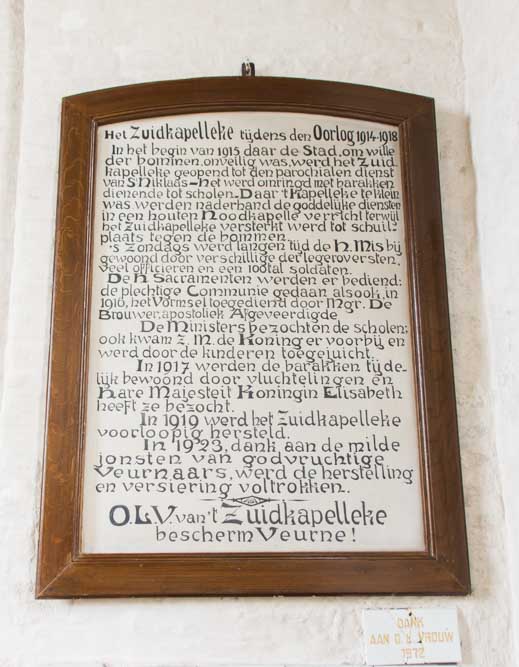 Het Zuidkapelleke tijdens den Oorlog 1914-1918
In het begin van 1915, daar de Stad, om wille
der bommen, onveilig was, werd het Zuid-
kapelleke geopend tot den parochialen dienst
van St Niklaas – het werd omringd met barakken
dienende tot scholen. Daar 't Kapelleke te klein
was werden naderhand de goddelijke diensten
in een houten Noodkapelle verricht terwijl
het Zuidkapelleke versterkt werd tot schuil-
plaats tegen de bommen.
's Zondags werd langen tijd de H. Mis bij
gewoond door verschillige der legeroversten.
veel officieren en een 100tal soldaten.
De H. Sacramenten werden er bediend:
de plechtige Communie gedaan, als ook, in
1916, het Vormsel toegediend door Mgr. De
Brouwer, apostoliek Afgeveerdigde.
De Ministers bezochten de scholen;
ook kwam z. M. de Koning er voorbij en
werd door de kinderen toegejuicht.
In 1917 werden de barakken tijde-
lijk bewoond door vluchtelingen en
Hare Majesteit Koningin Elisabeth
heeft ze bezocht.
In 1919 werd het Zuidkapelleke
voorloopig hersteld.
In 1923, dank aan de milde
jonsten van godvruchtige
Veurnaars, werd de herstelling
en versiering voltrokken.
O.L.V. van 't Zuidkapelleke
bescherm Veurne!
DANK
AAN O. L. VROUW
1972